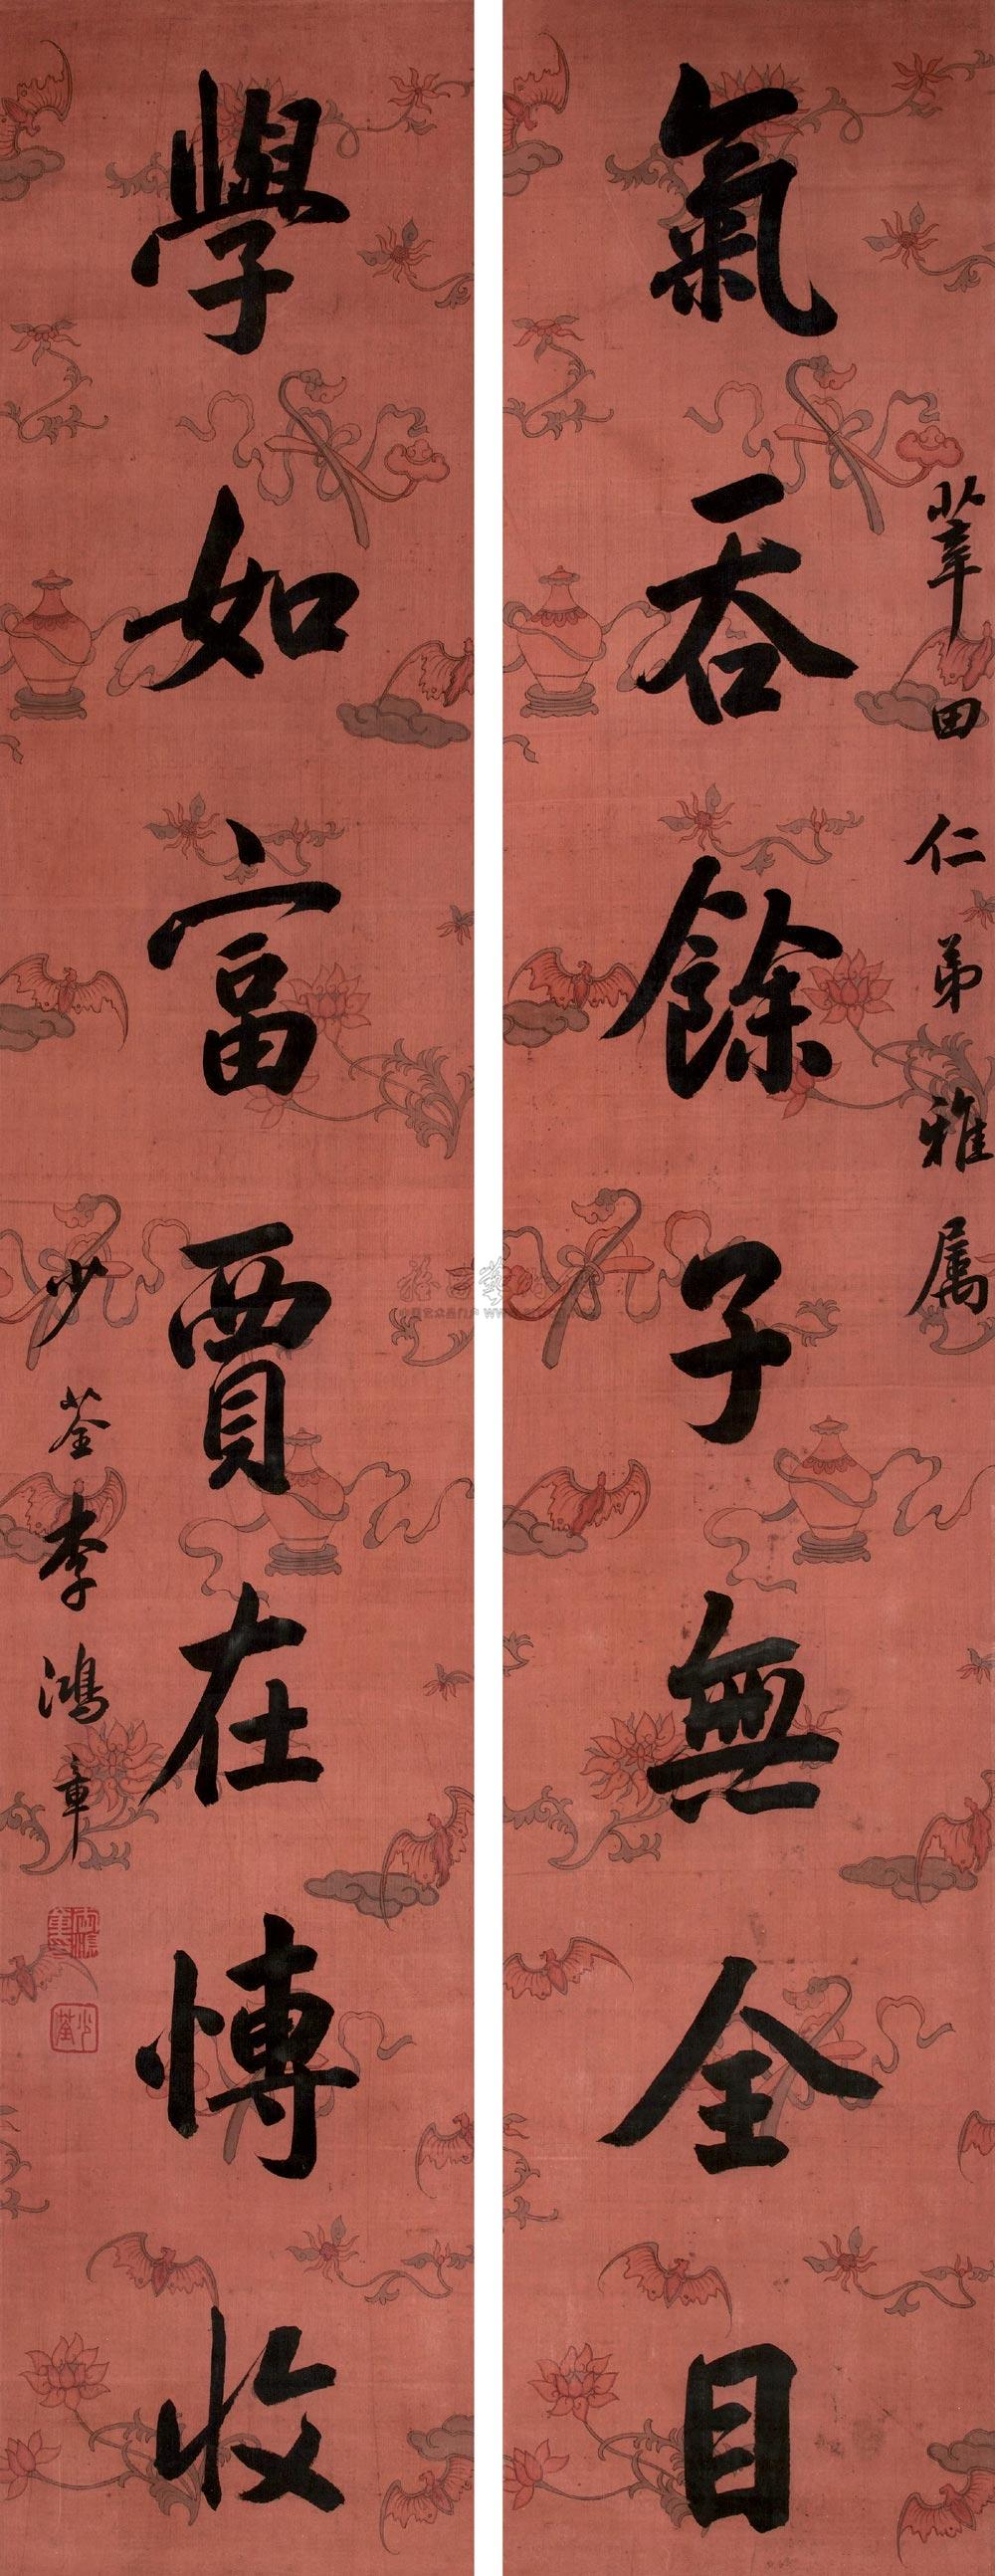 莘田仁弟雅属
氣吞餘子無全目
學如富賈在博收
少荃李鴻章
少荃